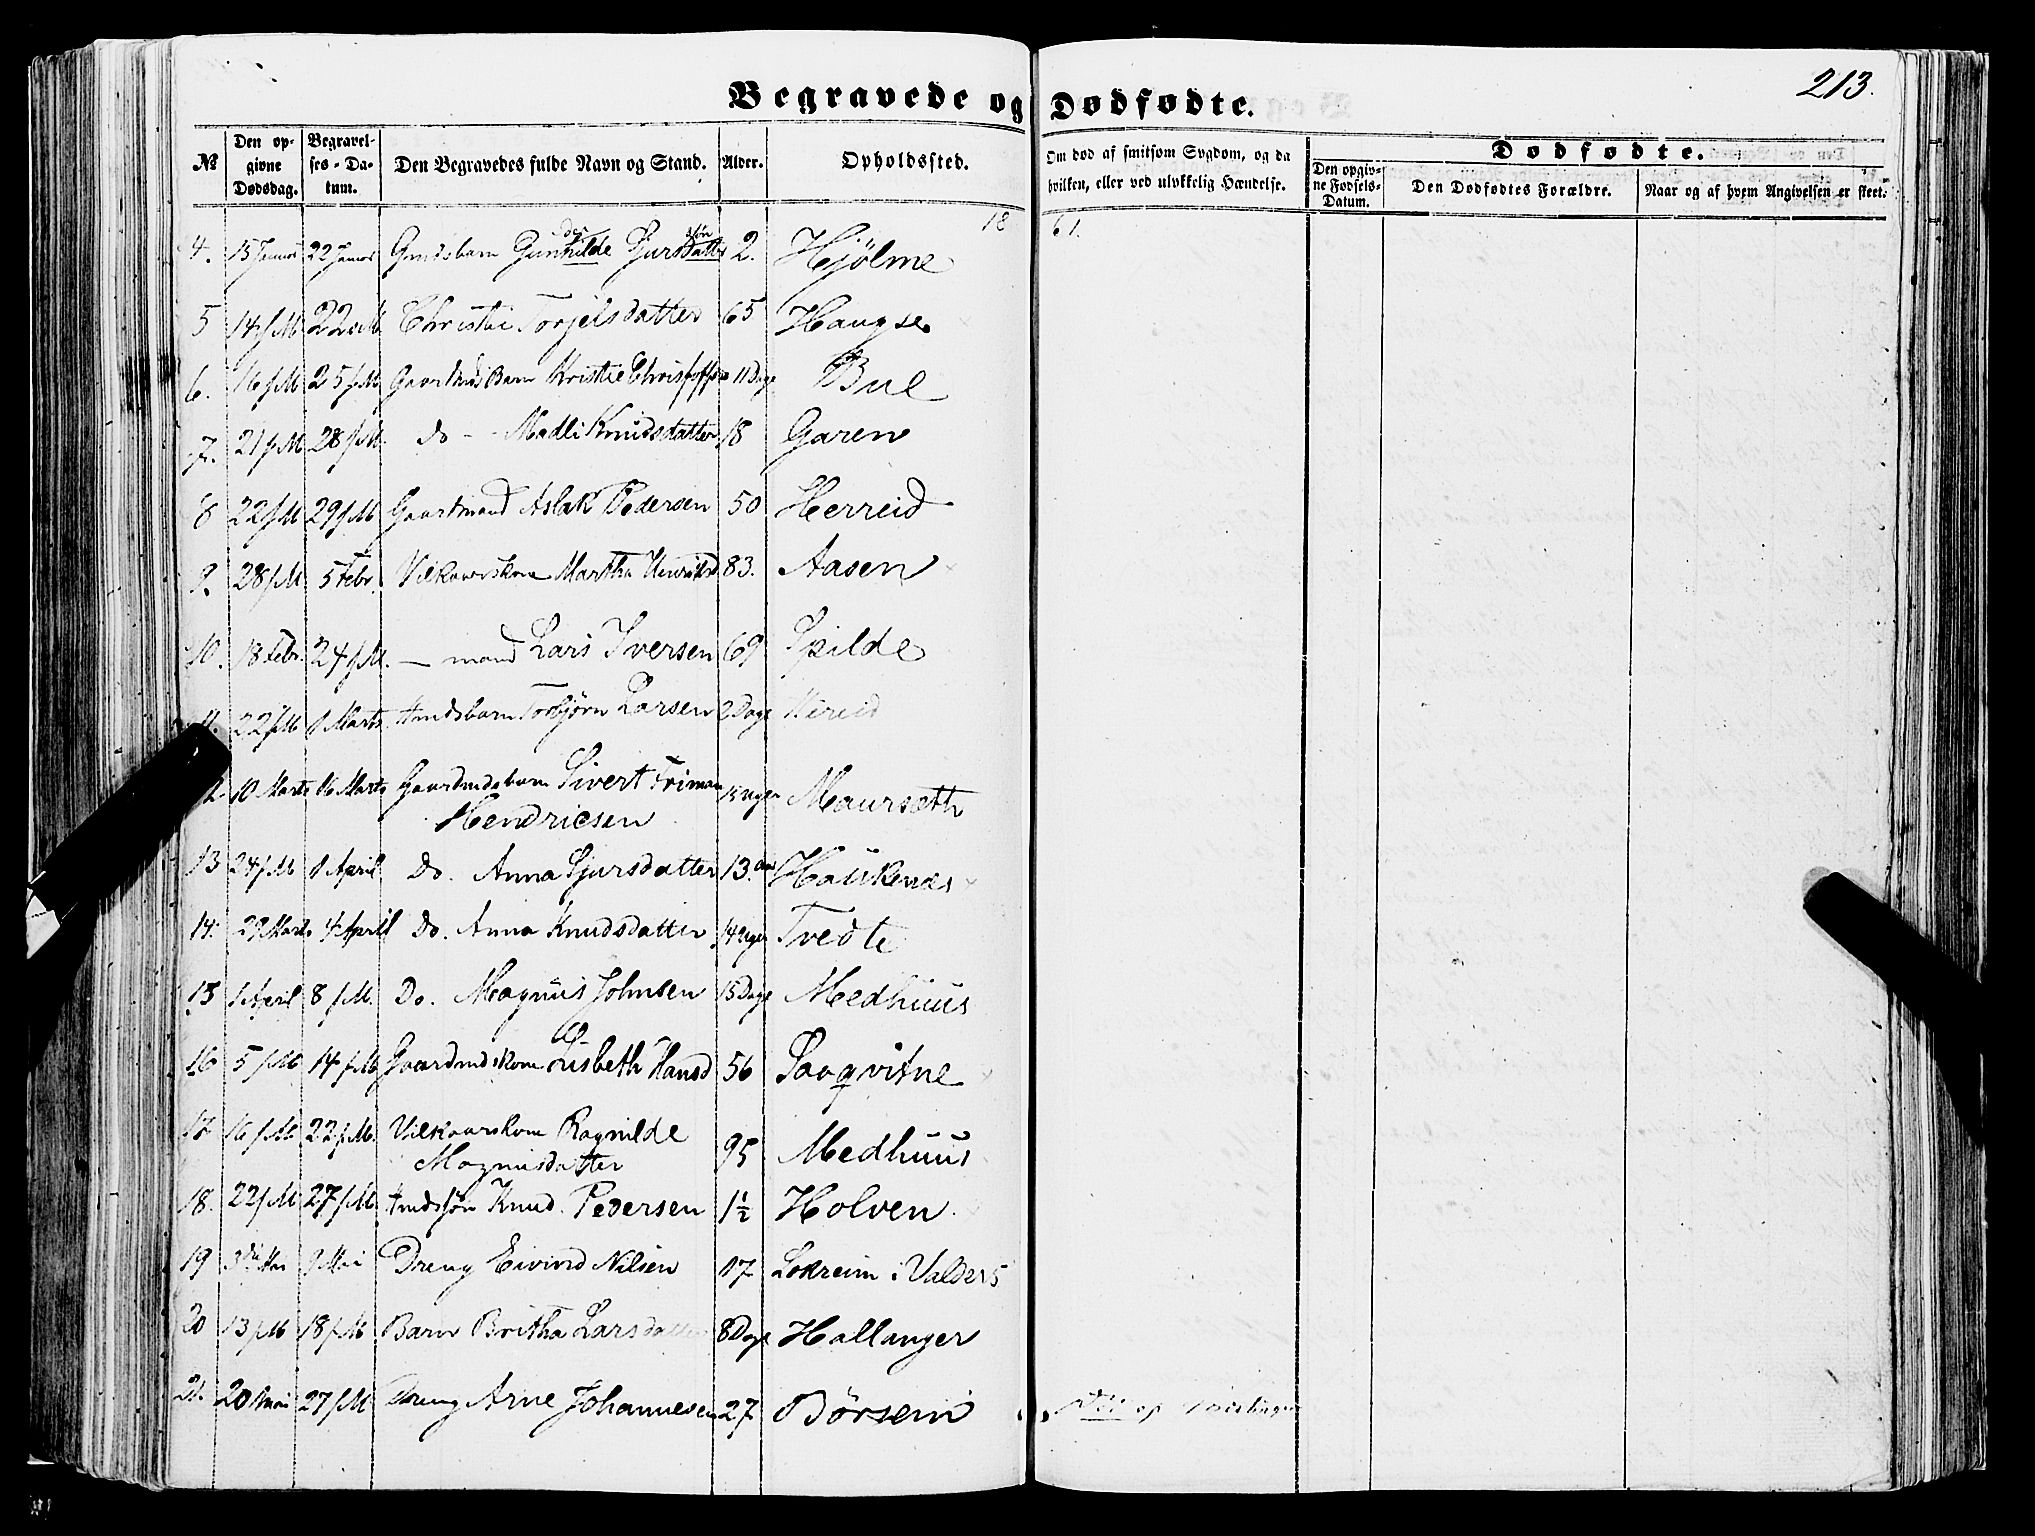 213.
Begravede og Dødfødte.
№ Den opgivne Dødsdag. Begravelses-Datum. Den Begravedes fulde Navn og Stand. Alder. Opholdssted. Om død af smitsom Sygdom, og da hvilken, eller ved ulykkelig Hændelse. Dødfødte. Den opgivne Fødsels-Datum. Den Dødfødtes Forældre. Naar og af hvem Angivelsen er skeet.
1861.
4. 15 Januar 22 Januar Gmdsbarn Gunhilde Sjursdatter 2. Hjölme
5 14 f M 22 d M Christie Torjelsdatter 65 Haugse
6. 16 f M 25 f M Gaardmds Barn Kristie Christoffs 11 Dage Bue
7. 21 f M 28 f M. do - - Madli Knudsdatter 18 Garen
8 22 f M 29 f M Gaardmand Aslak Pedersen 50 Herreid
9. 28 f M 5 Febr. Vilkaarskone Martha Henriksd 83. Aasen
10. 18 Febr. 24 f M. — mand Lars Iversen 69 Spilde
11. 22 f M 1 Marts Indsbarn Torbjörn Larsen 2 Dage Hereid
12. 10 Marts 16 Marts Gaardmdsbarn Sivert Friman 15 Uger Maursæth
Hendricsen
13 24 f M 1 April Do. Anna Sjursdatter 13. Haukenæs
14. 29 Marts 4 April Do. Anna Knudsdatter 14 Uger Tvedte
15 1 April 8 f M. Do. Magnüs Johnsen 15 Dage Medhüus
16 5 f M 14 f M Gaardmdskone Lisbeth Hansd 56 Saaqvitne
17 16 f M 22 f M. Vilkaarskone Ragnilde
Magnusdatter 95 Medhuus
18. 22 f M 27 f M. Indssön Knud Pedersen 1½ Holven.
19 3die Mai 9 Mai Dreng Eivind Nilsen 17 Lokreim i Valders
20 13 f M 18 f M Barn Britha Larsdatter 8 Dage Hallanger
21. 20 Mai 27 f M Dreng Arne Johannesen 27 Börsem